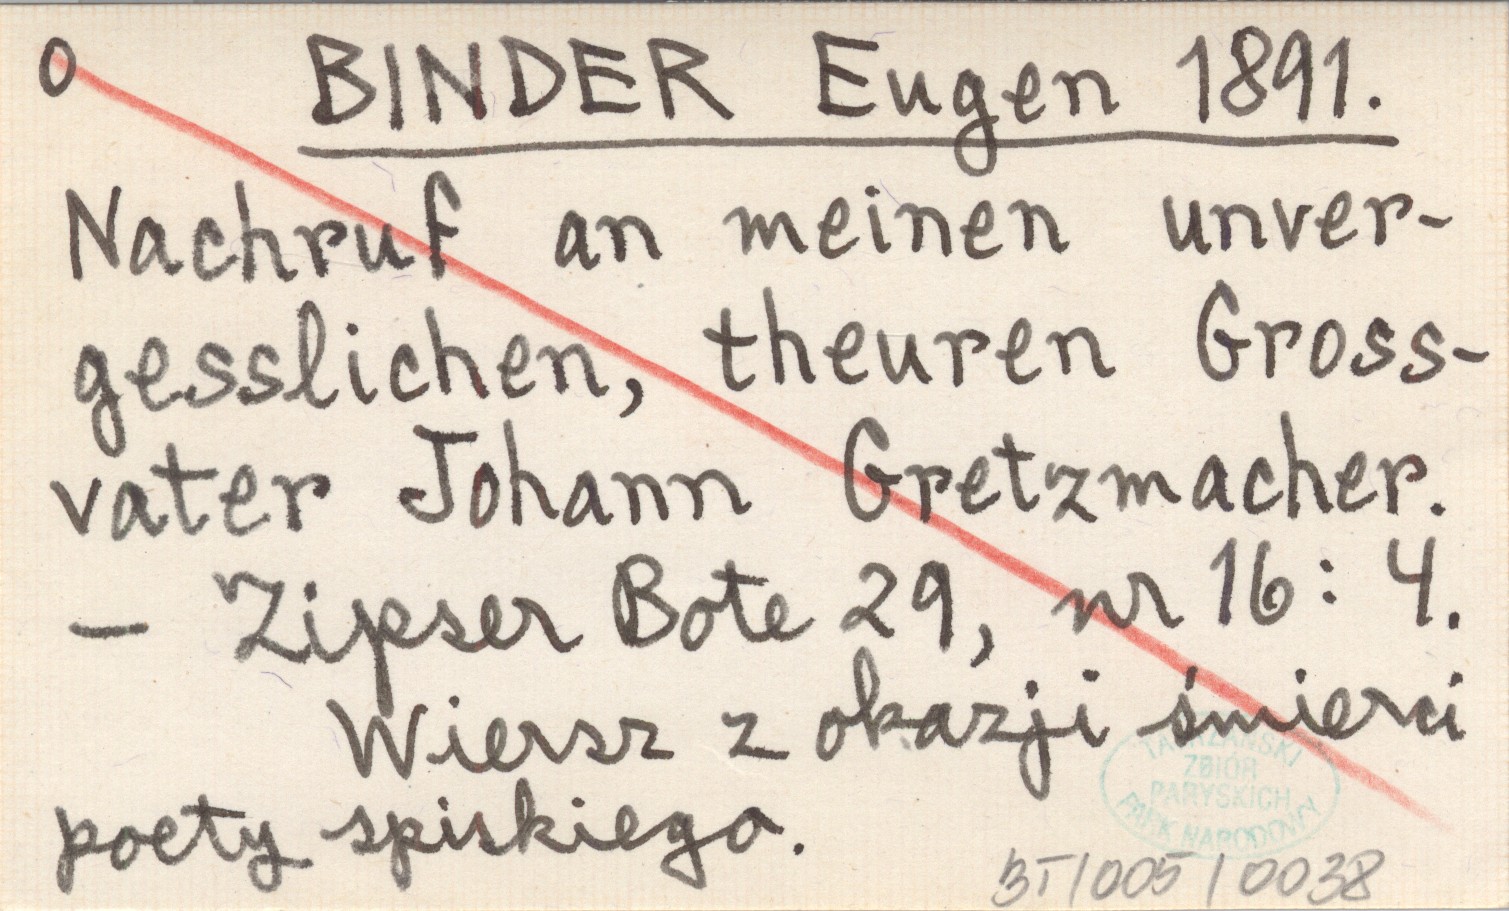 O BINDER Eugen 1891.
Nachruf an meinen unver-
gesslichen, theuren Gross-
vater Johann Gretzmacher.
— Zipser Bote 29, nr 16 : 4.
Wiersz z okazji śmierci
poety spiskiego.
TATRZAŃSKI
ZBIÓR
PARYSKICH
PARK NARODOWY
BT/005/0038